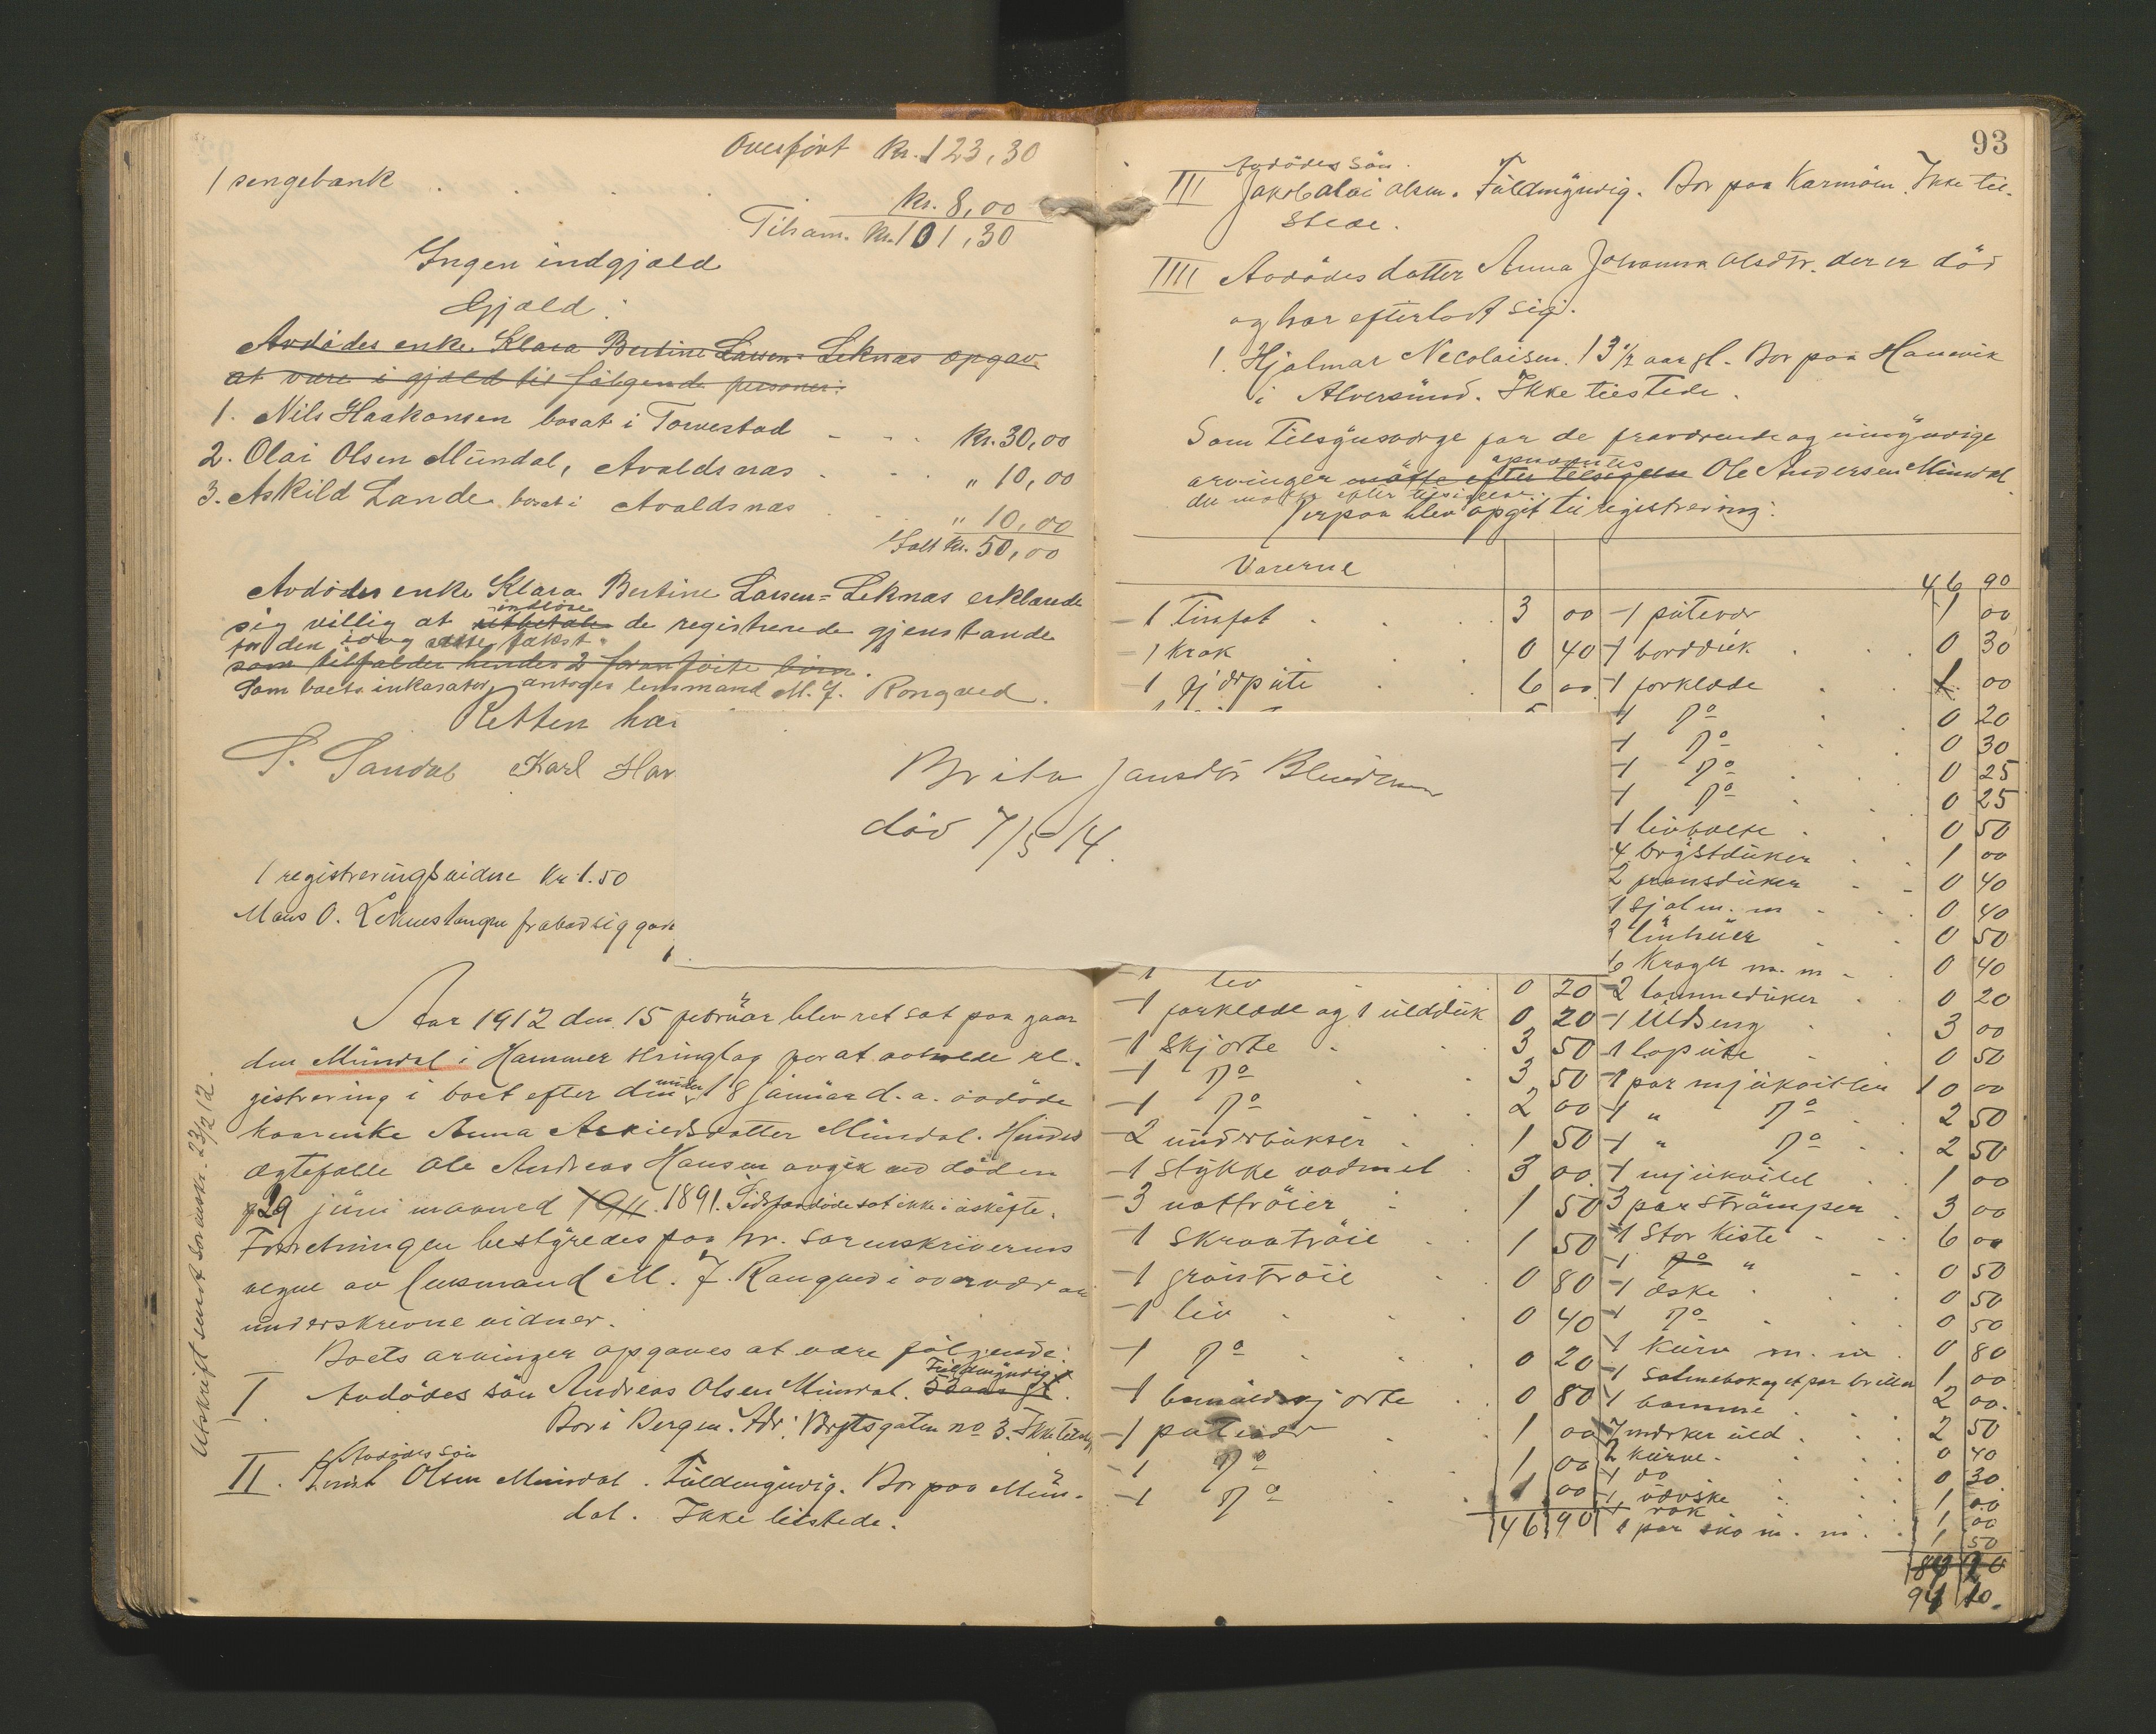 Overført Kr. 123,30
1 sengebank
Kr. 8,00
Tilsam. Kr. 101,30
Ingen indgjæld
Gjæld:
Avdødes enke Klara Bertine Larsen-Leknæs opgav
at være i gjæld til følgende personer:
1. Nils Haakonsen bosat i Torvestad Kr. 30,00
2. Olai Olsen Mündal, Avaldsnæs " 10,00
3. Askild Lande bosat i Avaldsnæs " 10,00
Kr. 50,00
Avdødes enke Klara Bertine Larsen-Leknæs erklærede
indløse
sig villig at utbetale de registrerede gjenstande
for den idag satte takst.
som tilfalder hendes 2 foranførte børn.
Som boets inkasator antoges lensmand M. J. Rongved.
Retten hæ
S. Sandal Karl Hav
1 registreringsvidne Kr 1.50
Mons O. frabad sig godt
Brita Jansdtr
død 7/5 14.
Aar 1912 den 15 februar blev ret sat paa gaar
den Mündal i Hammer tinglag for at avholde re-
gistrering i boet efter den under 18 januar d. a. avdøde
kaarenke Anna Askildsdatter Mündal. Hendes
ægtefælle Ole Andreas Hansen avgik ved døden
29 juni maaned 1911. 1891. Sidstavdøde sat ikke i uskifte.
Forretningen bestyredes paa hr. sorenskriverens
vegne av lensmand M. J. Rongved i overvær av
underskrevne vidner.
Boets arvinger opgaves at være følgende:
Fuldmyndig
I Avdødes søn Andreas Olsen Mündal. 52 aar gl.
Bor i Bergen. Adr: no 3. Ikke tilsted
Avdødes søn
II. Olsen Mündal. Fuldmyndig. Bor paa Mün-
dal. Ikke tilstede.
Utskrift sendt sorenskr. 23/2 12.
93
Avdødes søn.
III Jakob Olai Olsen. Fuldmyndig. Bor paa Karmøen. Ikke til-
stede.
IIII Avdødes datter Anna Johanna Olsdtr. der er død
og har efterladt sig:
1. Hjalmar Nicolaisen. 13 1/2 aar gl. Bor paa Hanevik
i Alversund. Ikke tilstede.
Som tilsynsværge for de fraværende og umyndige
opnævntes
arvinger møtte efter tilsigelse Ole Andersen Mündal
der møtte efter tilsigelse.
Derpaa blev opgit til registrering:
Varerne
1 Tinfat 3 00
1 Krak 0 40
1 fjørpute 6 00
1 liv 0 20
1 forklæde og 1 ulddük 0 20
1 skjorte 3 50
1 Do 3 50
1 Do 2 00
2 underbukser 1 50
1 stykke vadmel 3 00
3 nattrøier 1 50
1 skraatrøie 1 50
1 0 80
1 liv 0 40
1 Do 0 20
1 bomuldskjorte 0 80
1 putevar 1 00
1 Do 1 00
1 Do 1 00
46 90
46 90
1 putevar 1 00
1 borddük 0 30
1 forklæde 1 00
1 Do 0 20
1 Do 0 30
1 Do 0 25
1 Do 0 25
1 livbælte 0 50
4 brystduker 1 00
2 0 40
1 sjal m. m 0 40
linhuer 0 50
6 Krager m. m 0 40
2 lommeduker 0 20
1 Uldseng 3 00
1 0 50
1 par 10 00
1 " Do 2 50
1 " Do 2 50
1 1 00
3 par strømper 3 00
1 stor kiste 6 00
1 Do " 0 50
1 æske 0 50
1 Do 0 50
1 Kurv m. m 0 80
1 salmebok og et par briller 1 00
1 bomme 2 00
7 merker uld 2 50
2 kurve 0 40
1 do 0 30
1 1 00
1 rok 1 00
1 par sko m. m. 1 50
94 10